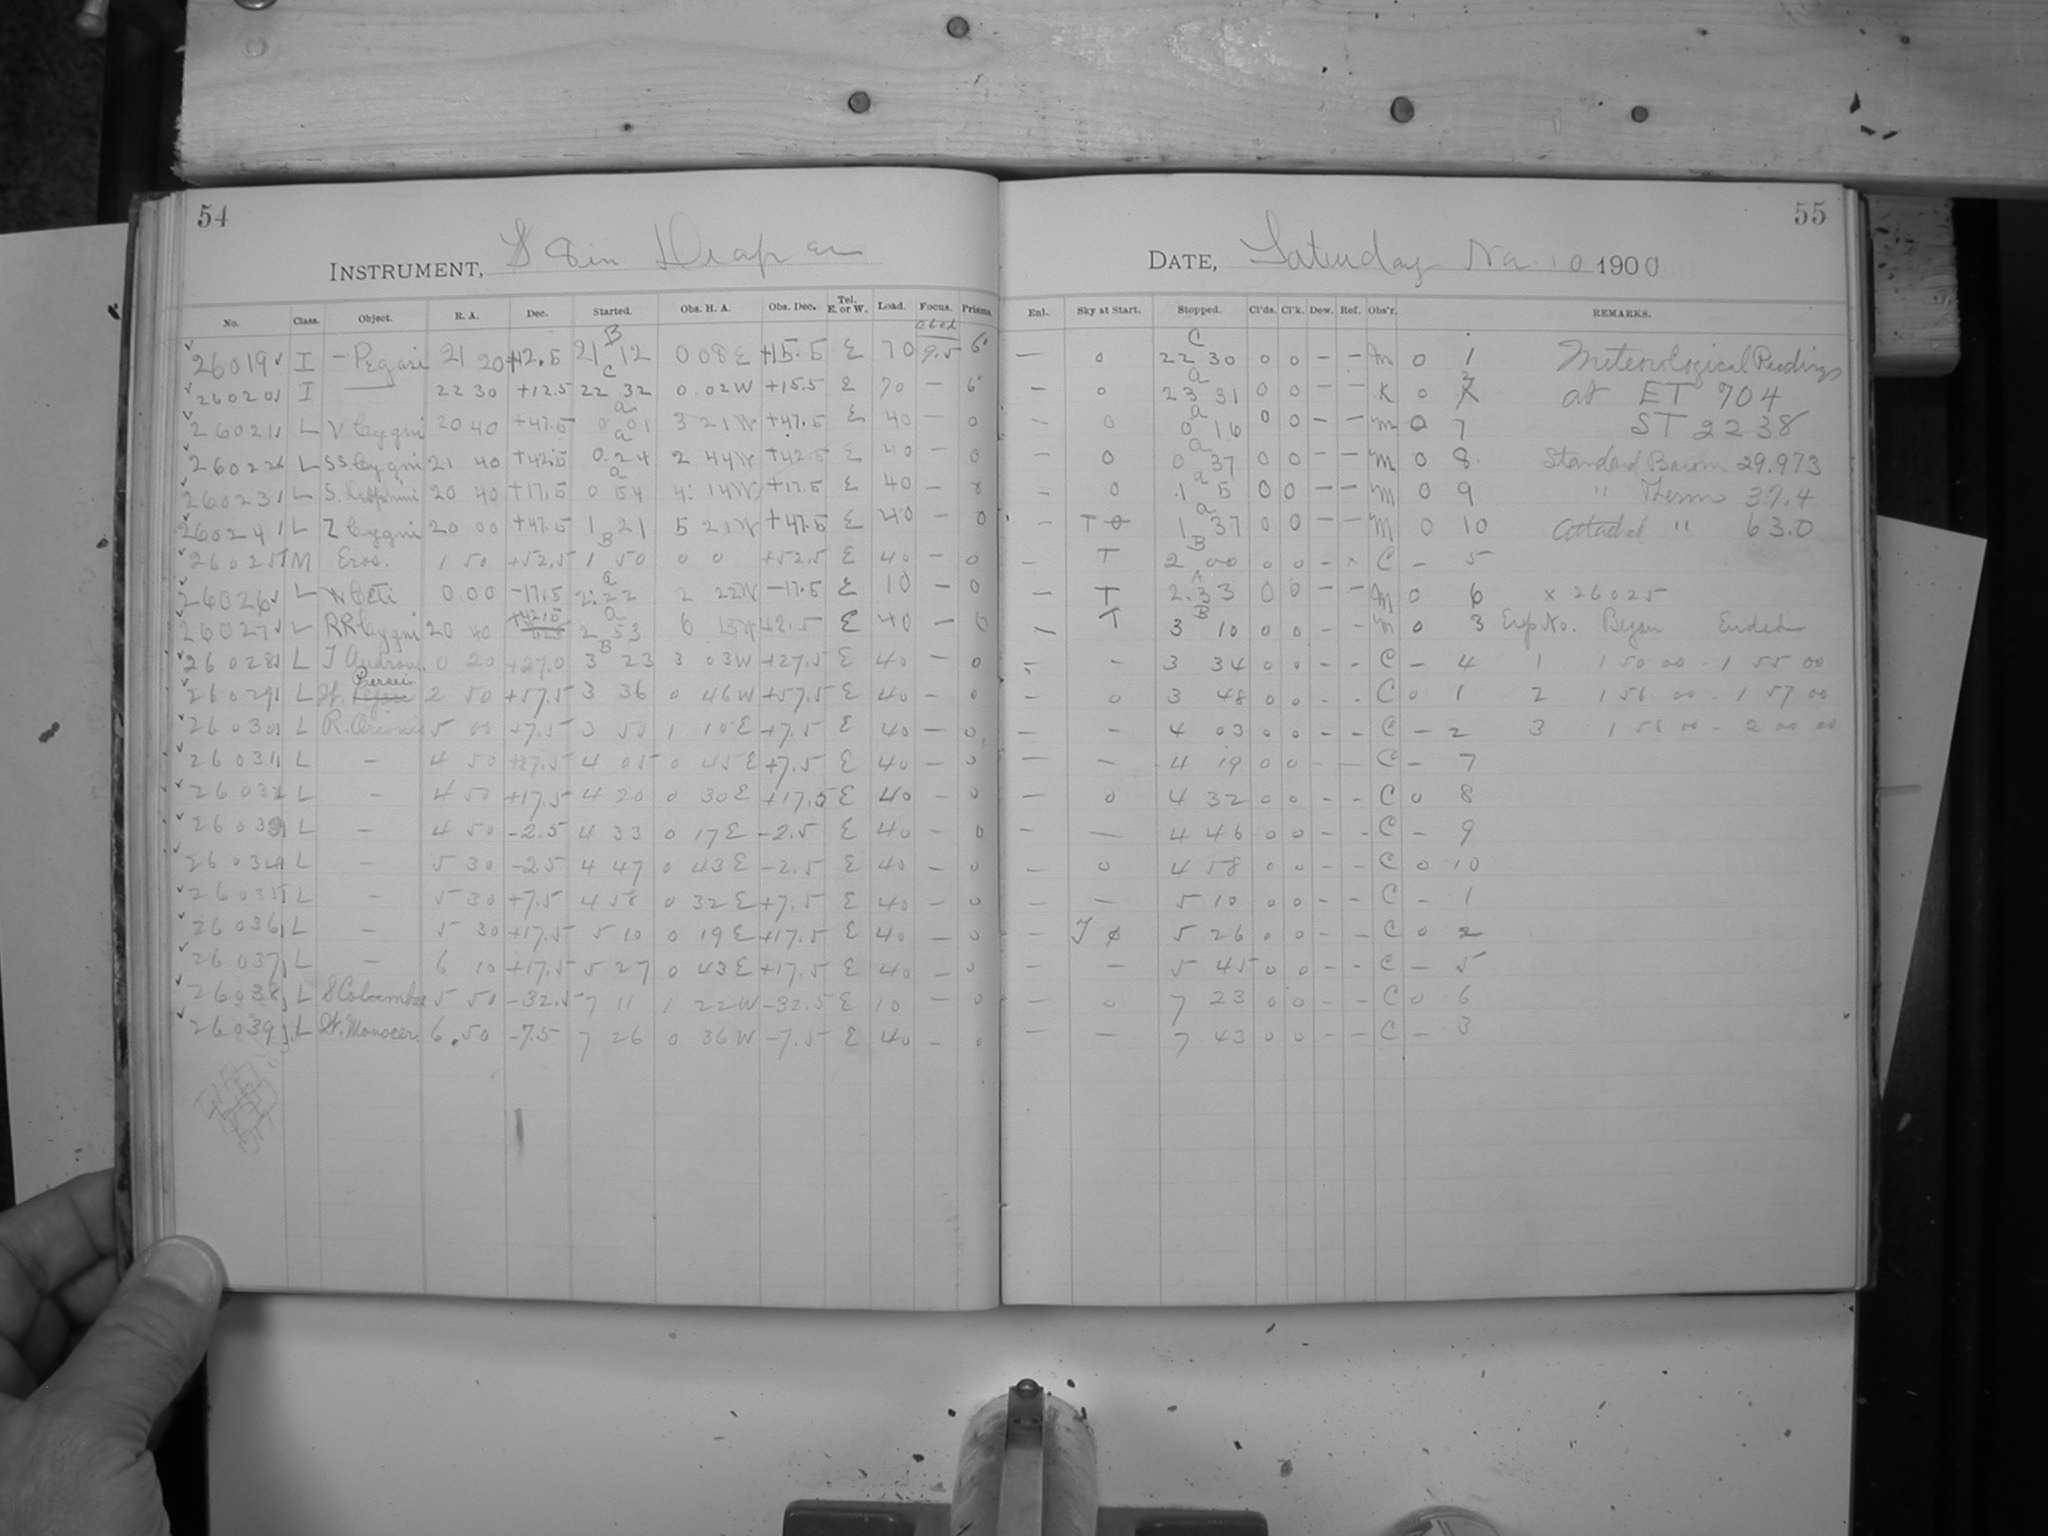 54
INSTRUMENT, 8 in Draper
No. Class. Object. R. A. Dec. Started. Obs. H. A. Obs. Dec. Tel. E. or W. Load. Focus. Prisms
26019 I - Pegasi 21 20 +12.5 B 21 12 0 08 E +15.5 E 70 9.5 6°
26020 I 22 30 +12.5 C 22 32 0.02 W +15.5 E 70 - 6°
26021 L V Cygni 20 40 +47.5 a 0 01 3 21 W +47.5 E 40 - 0
26022 L SS. Cygni 21 40 +42.5 a 0.24 2 44 W +42.5 E 40 - 0
26023 L S. Delphini 20 40 +17.5 a 0 54 4 14 W +17.5 E 40 - 0
26024 L Z Cygni 20 00 +47.5 1 21 5 21 W +47.5 E 40 - 0
26025 M Eros. 1 50 +52.5 B 1 50 0 0 +52.5 E 40 - 0
26026 L W Ceti 0.00 -17.5 a 2.22 2 22 W -17.5 E 10 - 0
26027 L RR Cygni 20 40 +42.5 a 2 53 6 13 W 42.5 E 40 - 0
26028 L T Androm. 0 20 +27.0 B 3 23 3 03 W +27.5 E 40 - 0
26029 L W. Persei 2 50 +57.5 3 36 0 46 W +57.5 E 40 - 0
26030 L R. Orionis 5 00 +7.5 3 50 1 10 E +7.5 E 40 - 0
26031 L - 4 50 +7.5 4 05 0 45 E +7.5 E 40 - 0
26032 L - 4 50 +17.5 4 20 0 30 E +17.5 E 40 - 0
26033 L - 4 50 -2.5 4 33 0 17 E -2.5 E 40 - 0
26034 L - 5 30 -2.5 4 47 0 43 E -2.5 E 40 - 0
26035 L - 5 30 +7.5 4 58 0 32 E +7.5 E 40 - 0
26036 L - 5 30 +17.5 5 10 0 19 E +17.5 E 40 - 0
26037 L - 6 10 +17.5 5 27 0 43 E +17.5 E 40 - 0
26038 L S Columbae 5 50 -32.5 7 11 1 22 W -32.5 E 10 - 0
26039 L W. Monocer. 6.50 -7.5 7 26 0 36 W -7.5 E 40 - 0
55
DATE, Saturday Nov 10 1900
Enl. Sky at Start. Stopped. Cl'ds. Cl'k. Dew. Ref. Obs'r. REMARKS.
- 0 C 22 30 0 0 - - M 0 1 Meteorological Readings
- 0 a 23 31 0 0 - - K 0 2 at ET 704
- 0 a 0 16 0 0 - - M 0 7 ST 2238
- 0 a 0 37 0 0 - - M 0 8 Standard Barom 29.973
- 0 a 1 5 0 0 - - M 0 9 " Therm 37.4
- T 0 a 1 37 0 0 - - M 0 10 Attached " 63.0
- T B 2 00 0 0 - x C - 5
- T A 2.33 0 0 - - M 0 6 x 26025
- T B 3 10 0 0 - - M 0 3 Exp No. Began Ended
- - 3 34 0 0 - - C - 4 1 1 50 00 - 1 55 00
- 0 3 48 0 0 - - C 0 1 2 1 56 00 - 1 57 00
- - 4 03 0 0 - - C - 2 3 1 58 00 - 2 00 00
- - 4 19 0 0 - - C - 7
- 0 4 32 0 0 - - C 0 8
- - 4 46 0 0 - - C - 9
- 0 4 58 0 0 - - C 0 10
- - 5 10 0 0 - - C - 1
- T 5 26 0 0 - - C 0 2
- - 5 45 0 0 - - C - 5
- 0 7 23 0 0 - - C 0 6
- - 7 43 0 0 - - C - 3